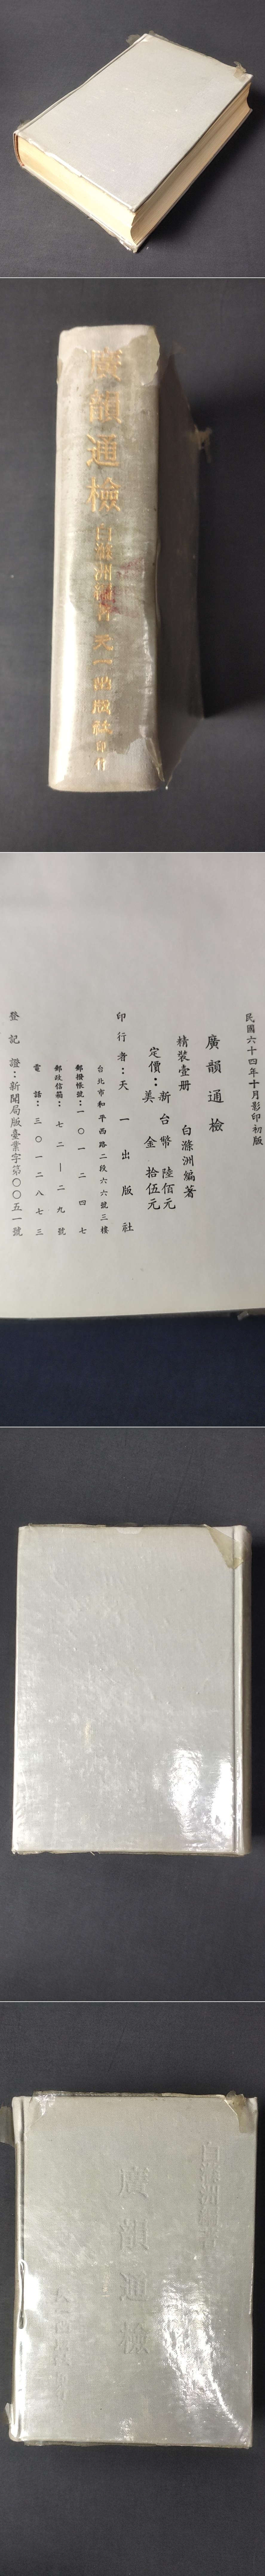 廣韻通檢 白滌洲編著 天一出版社印行
民國六十四年十月影印初版
廣韻通檢
精裝壹册 白滌洲編著
定價：新台幣 陸佰元
美金 拾伍元
印行者：天一出版社
台北市和平西路二段六六號三樓
郵撥帳號：一〇一二四七
郵政信箱：七二｜二九號
電話：三〇一二八七三
登記證：新聞局版臺業字第〇〇五一號
白滌洲編著
廣韻通檢
天一出版社